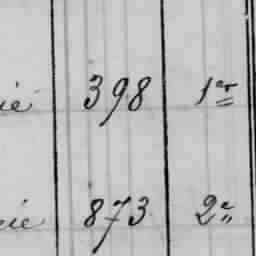 ié 398 1er
ie 873 2e